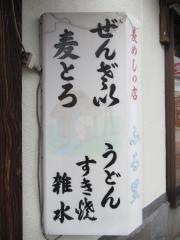 麦めしの店
ふる里
ぜんざい
麦とろ
うどん
すき焼
雑水